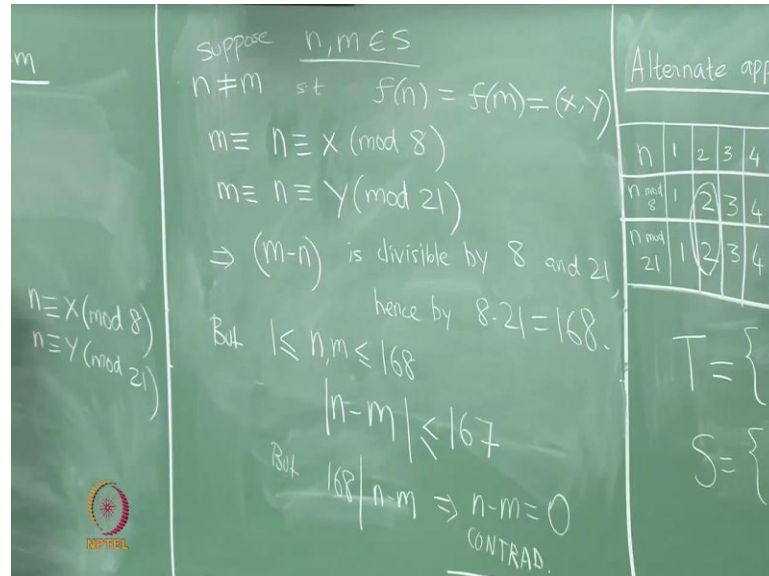 m
n≡X(mod 8)
n≡Y(mod 21)
suppose n,m∈S
n≠m st f(n) = f(m) = (X,Y)
m≡ n≡X (mod 8)
m≡ n≡ Y (mod 21)
⇒ (m-n) is divisible by 8 and 21,
hence by 8·21=168.
But 1≤ n,m ≤168
|n-m| ≤167
But 168|n-m ⇒ n-m=0
CONTRAD.
Alternate app
n 1 2 3 4
n mod 8 1 2 3 4
n mod 21 1 2 3 4
T={
S={
NPTEL